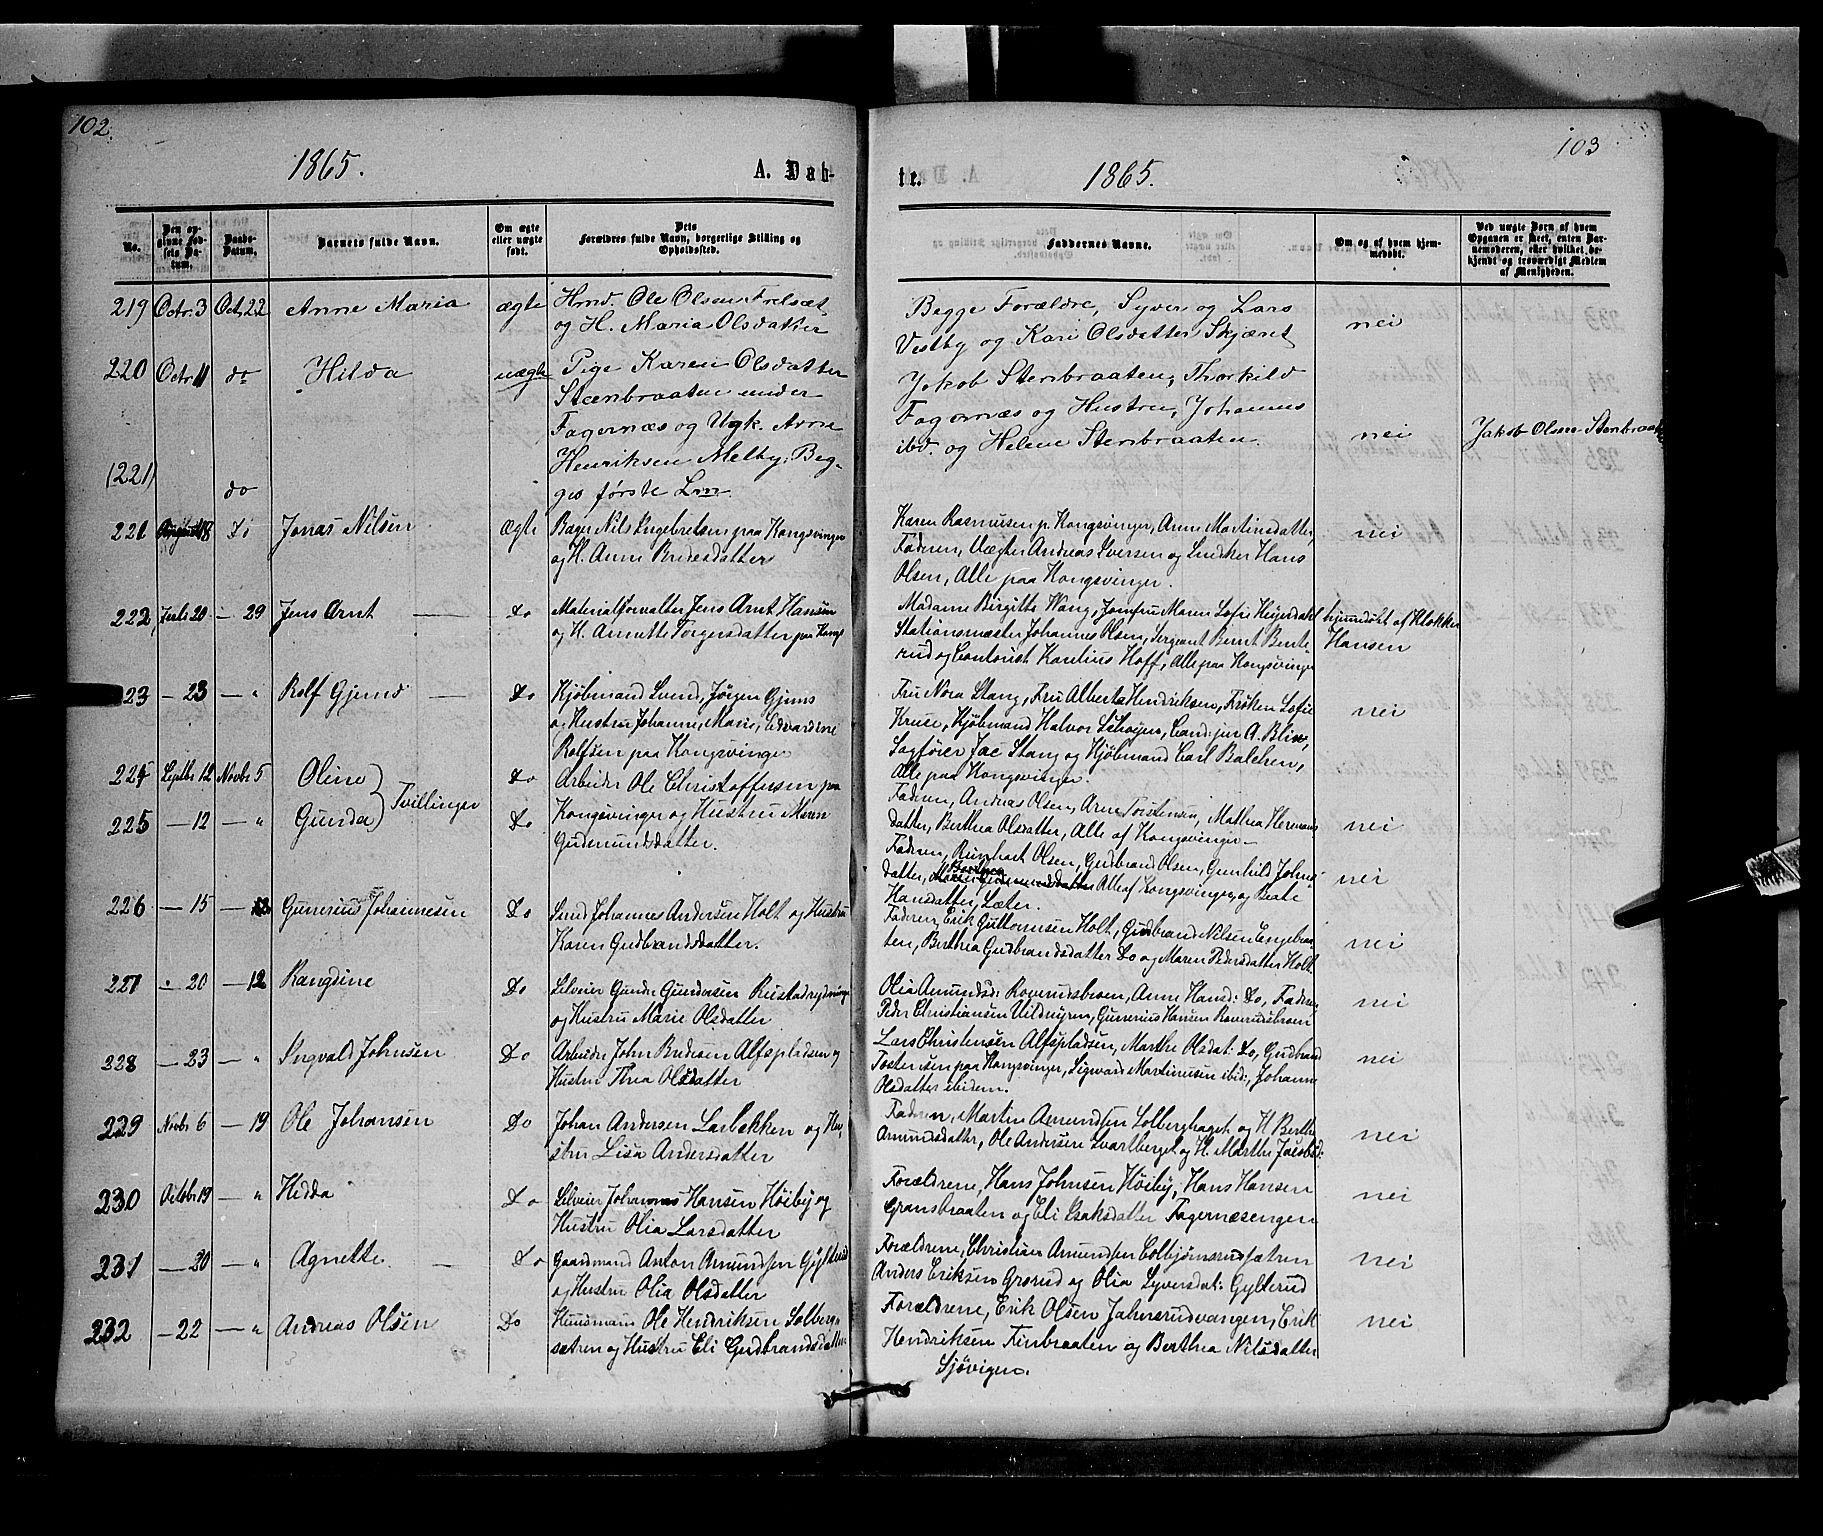 102.
1865.
A. Døb-
No.
Den op-
givne Fød-
sels Da-
tum.
Daabs-
Datum.
Barnets fulde Navn.
Om ægte
eller uægte
født.
Dets
Forældres fulde Navn, borgerlige Stilling og
Opholdssted.
219 Octr. 3 Oct. 22 Anne Maria ægte Hmd. Ole Olsen Frelsæt
og H. Maria Olsdatter
220 Octr 11 do Hilda uægte Pige Karen Olsdatter
Steenbraaten under
Fagernæs og Ungk. Arne
Henriksen Melby. Beg-
(221) do ges første Lm
221 August 18 Do Jonas Nilsen Ægte Bager Nils Ingebretsen paa Kongsvinger
og H. Anne Bredesdatter
222 20 — 29 Jens Arnt Do Materialforvalter Jens Arnt Hansen
og H. Annette Torgersdatter paa Kongs
223 — 23 — „ Rolf Gjems Do Kjøbmand Svend Jørgen Gjems
og Hustru Johanne Marie Edvardine
Rolfsen paa Kongsvinger
224 Septbr 12 Novbr 5 Oline Do Arbeider Ole Christoffersen paa
Tvillinger
225 — 12 — „ Gunda Do Kongsvinger og Hustru Maren
Gudmundsdatter.
226 — 15 — 12 Gunerius Johannesen Do Johannes Andersen Holt og Hustru
Karen Gudbrandsdatter.
227 „ 20 — 12 Rangdine Do Selveier Gunder Gundersen
og Hustru Marie Olsdatter
228 — 23 — „ Ingvald Johnsen Do Arbeider John Alfspladsen og
Hustru Thea Olsdatter
229 Novbr 6 — 19 Ole Johansen Do Johan Andersen Larbekken og Hu-
stru Lisa Andersdatter
230 Octobr 19 — „ Hedda Do Selveier Johannes Hansen Høiby og
Hustru Olia Larsdatter
231 — 30 — „ Agnethe Do Gaardmand Anton Amundsen Gylterud
og Hustru Olia Olsdatter
232 — 22 — „ Andreas Olsen Do Huusmand Ole Hendriksen Solberg-
sætren og Hustru Eli Gudbrandsdatter
103
te.
1865.
Faddernes Navne.
Om og af hvem hjem-
medøbt.
Ved uægte Børn af hvem
Opgaven er skeet, enten Bar-
nemoderen, eller hvilket be-
kjendt og troværdigt Medlem
af Menigheden.
Begge Forældre, Syver og Lars
Vestby og Kari Olsdatter Skjæret nei
Jakob Stenbraaten, Thorkild
Fagernæs og Hustru, Johannes
ibd. og Helene Stenbraaten. nei Jakob Olsen Stenbraaten
Karen Rasmussen p. Kongsvinger, Anne Martinsdatter, nei
Fadren, Vægter Andreas Iversen og Snedker Hans
Olsen, Alle paa Kongsvinger.
Madame Birgitte Wang, Jomfru Maren Sofie Heyerdahl hjemdøbt af Klokker
Stationsmester Johannes Olsen, Sergeant Bernt Bente- Hansen
rud og Contorist Kantius Hoff, Alle paa Kongsvinger
Fru Nora Stang, Fru Alberta Hendriksen, Frøken Sofie
Kruse, Kjøbmand Halvor Schøyen, Cand: jur A. Blix, nei
Sagfører Jac Stang og Kjøbmand Carl Balchen,
Alle paa Kongsvinger.
Fadren, Andreas Olsen, Arne Torstensen, Mathea Hermans
datter, Berthea Olsdatter, Alle af Kongsvinger — nei
Fadren, Rinhart Olsen, Gudbrand Olsen, Gunhild Johns-
datter, Berthea Maren Gudmundsdatter Alle af Kongsvinger, og Beate nei
Hansdatter, Sæter.
Faderen, Erik Guttormsen Holt, Gudbrand Nilsen Engebraa-
ten, Berthea Gudbrandsdatter Do og Maren Pedersdatter Holt nei
Olia Amundsd: Roverudsbroen, Anne Hansd: Do, Faderen
Peder Christiansen Gunerius Hansen Roverudsbroen nei
Lars Christensen Alfspladsen, Marthe Olsdat: Do, Gudbrand nei
Tostensen paa Kongsvinger, Sigvard Martinusen ibid:, Johanne
Olsdatter ibidem.
Fadren, Martin Amundsen Solberghaget og H. Berthe
Amundsdatter, Ole Andersen Svartberget og H. Marthe Jacobsd: nei
Forældrene, Hans Johnsen Høiby, Hans Hansen nei
Gransbraaten og Eli Isaksdatter Fagernæsengen
Forældrene, Christian Amundsen Colbjørnsrudsætren nei
Anders Eriksen Grørud og Olia Syversdat: Gylterud
Forældrene, Erik Olsen Jahnsrudvangen, Erik nei
Hendriksen Finbraaten og Berthea Nilsdatter
Sjøvigen.